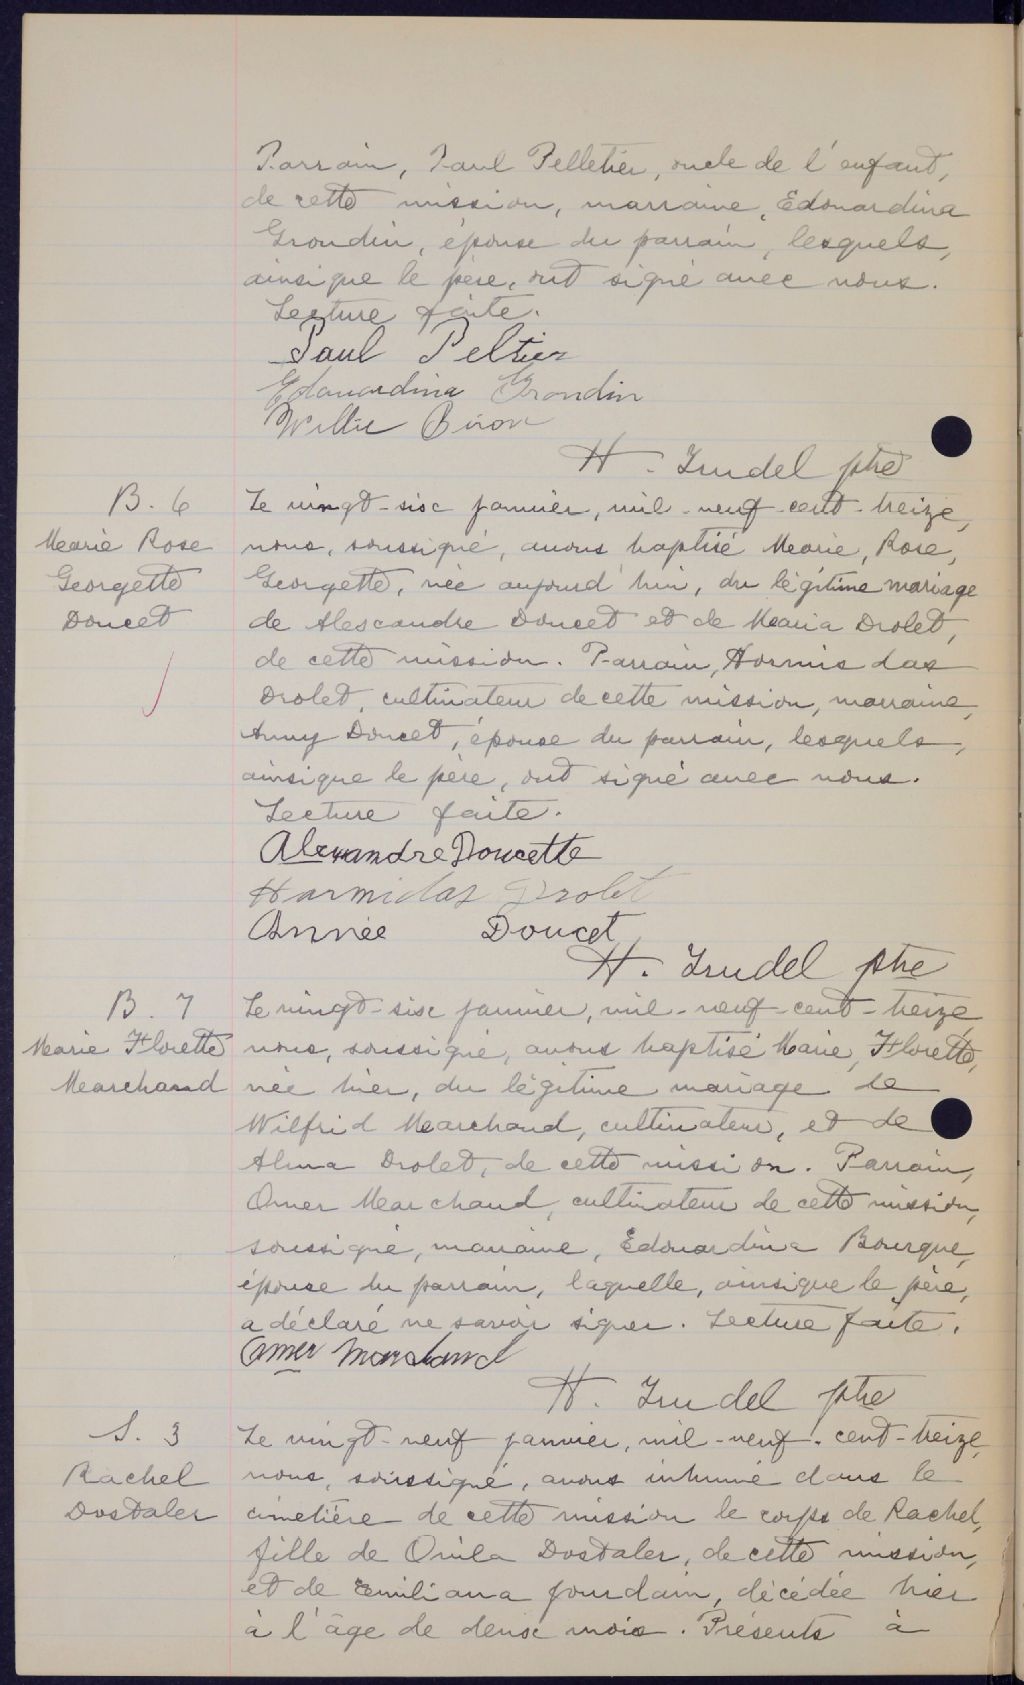 Parrain, Paul Pelletier, oncle de l'enfant,
de cette mission, marraine, Edouardina
Grondin, épouse du parrain, lesquels,
ainsi que le père, ont signé avec nous.
Lecture faite.
Paul Peltier
Edouardina Grondin
Willie Biron
H. Trudel ptre
B. 6
Marie Rose
Georgette
Doucet
Le vingt-six janvier, mil-neuf-cent-treize,
nous, soussigné, avons baptisé Marie, Rose,
Georgette, née aujourd'hui, du légitime mariage
de Alexandre Doucet et de Maria Drolet,
de cette mission. Parrain, Hormisdas
Drolet, cultivateur de cette mission, marraine,
Anny Doucet, épouse du parrain, lesquels,
ainsi que le père, ont signé avec nous.
Lecture faite.
Alexandre Doucette
Harmidas Drolet
Année Doucet
H. Trudel ptre
B. 7
Marie Florette
Marchand
Le vingt-six janvier, mil-neuf-cent-treize,
nous, soussigné, avons baptisé Marie, Florette,
née hier, du légitime mariage de
Wilfrid Marchand, cultivateur, et de
Alma Drolet, de cette mission. Parrain,
Omer Marchand, cultivateur de cette mission,
soussigné, marraine, Edouardina Bourque,
épouse du parrain, laquelle, ainsi que le père,
a déclaré ne savoir signer. Lecture faite.
Omer Marchand
H. Trudel ptre
S. 3
Rachel
Dostaler
Le vingt-neuf janvier, mil-neuf-cent-treize,
nous, soussigné, avons inhumé dans le
cimetière de cette mission le corps de Rachel,
fille de Onila Dostaler, de cette mission,
et de Emiliana Jourdain, décédée hier
à l'âge de deux mois. Présents à